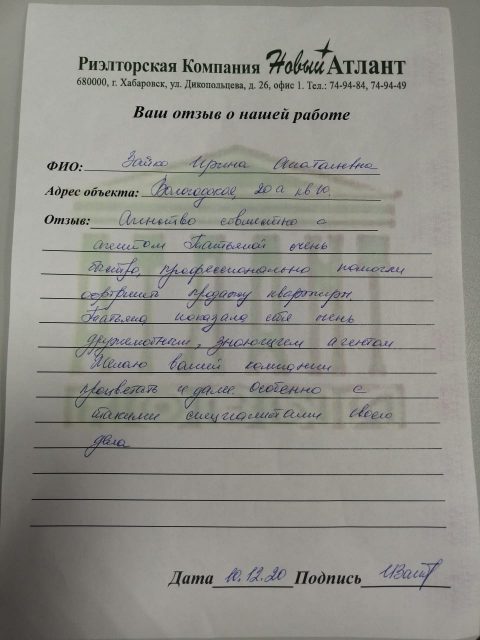 Риэлторская Компания Новый Атлант
680000, г. Хабаровск, ул. Дикопольцева, д. 26, офис 1. Тел.: 74-94-84, 74-94-49
Ваш отзыв о нашей работе
ФИО: Зайко Ирина Анатольевна
Адрес объекта: Вологодская, 20а кв 10.
Отзыв: Агенство совместно с
агентом Татьяной очень
быстро, профессионально помогли
совершить продажу квартиры
Татьяна показала себя очень
дружелюбным, знающем агентом
Желаю вашей компании
процветать и далее. Особенно с
такими специалистами своего
дела
Дата 10.12.20 Подпись